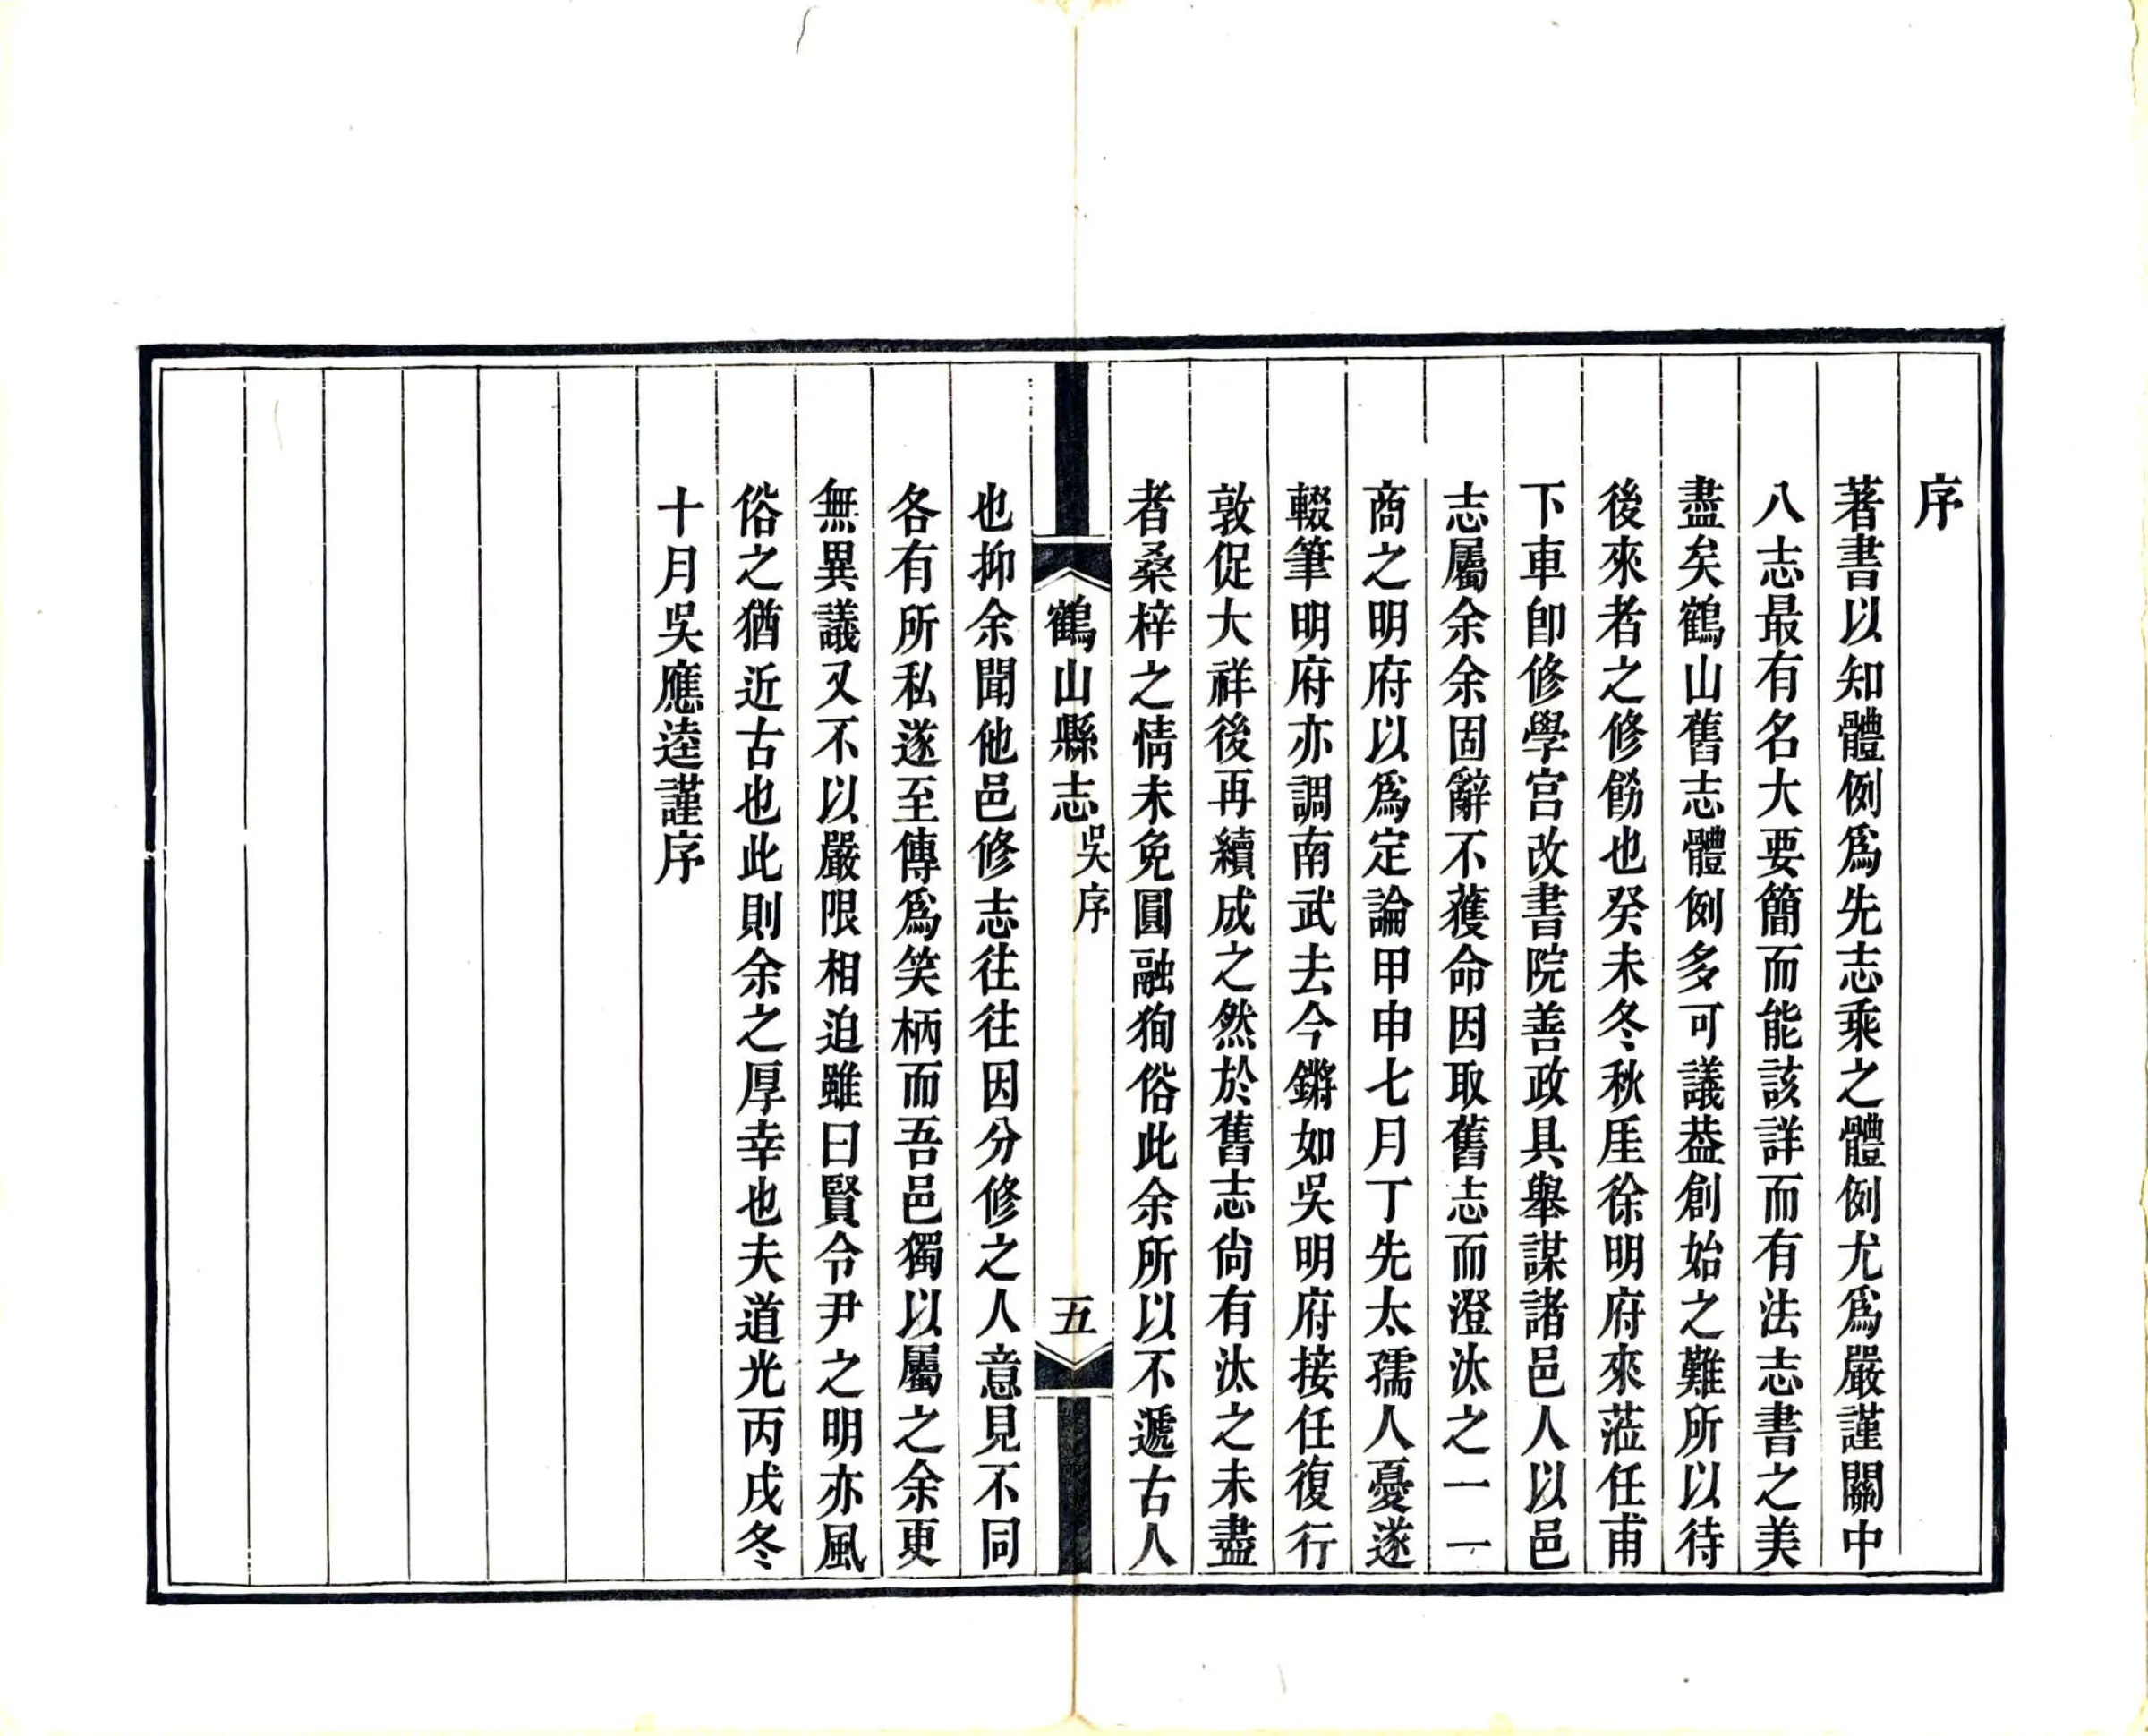 序
著書以知體例爲先志乘之體例尤爲嚴謹關中
八志最有名大要簡而能該詳而有法志書之美
盡矣鶴山舊志體例多可議葢創始之難所以待
後來者之修飭也癸未冬秋厓徐明府來蒞任甫
下車卽修學宮改書院善政具舉謀諸邑人以邑
志屬余余固辭不獲命因取舊志而澄汰之一一
商之明府以爲定論甲申七月丁先太孺人憂遂
輟筆明府亦調南武去今鏘如吳明府接任復行
敦促大祥後再續成之然於舊志尙有汰之未盡
者桑梓之情未免圓融狥俗此余所以不遞古人
鶴山縣志 吳序 五
也抑余聞他邑修志往往因分修之人意見不同
各有所私遂至傳爲笑柄而吾邑獨以屬之余更
無異議又不以嚴限相迫雖曰賢令尹之明亦風
俗之猶近古也此則余之厚幸也夫道光丙戌冬
十月吳應逵謹序